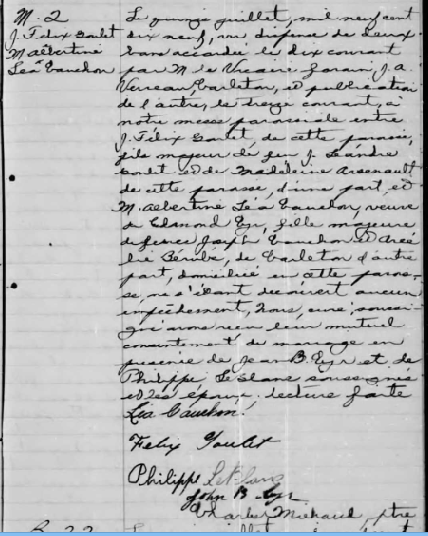 M. 2
J. Felix Goulet
M. Albertine
Léa Cauchon
Le quinze juillet, mil neuf cent
dix neuf, vu dispense de deux
bans accordée le dix courant
par M. le Vicaire forain J. A.
Verreau, Carleton, et publication
de l'autre, le treize courant, à
notre messe paroissiale entre
J. Félix Goulet de cette paroisse,
fils majeur de feu J. Léandre
Goulet et de Madeleine Arsenault
de cette paroisse, d'une part, et
M. Albertine Léa Cauchon, veuve
de Edmond Cyr, fille majeure
de Joseph Cauchon et
Bérubé, de Carleton d'autre
part, domiciliée en cette parois-
se, ne s'étant découvert aucun
empêchement, Nous, curé, soussi-
gné avons reçu leur mutuel
consentement de mariage en
présence de Jean B. Cyr et de
Philippe LeBlanc soussignés
et les époux. Lecture faite
Léa Cauchon
Felix Goulet
Philippe LeBlanc
John B. Cyr
Charles Michaud ptre